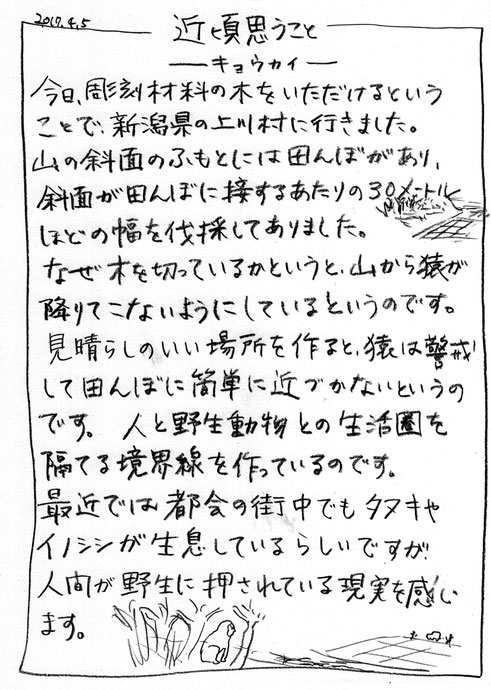 2017.4.5
近頃思うこと
―キョウカイ―
今日、彫刻材料の木をいただけるという
ことで、新潟県の上川村に行きました。
山の斜面のふもとには田んぼがあり、
斜面が田んぼに接するあたりの30メートル
ほどの幅を伐採してありました。
なぜ木を切っているかというと、山から猿が
降りてこないようにしているというのです。
見晴らしのいい場所を作ると、猿は警戒
して田んぼに簡単に近づかないというの
です。人と野生動物との生活圏を
隔てる境界線を作っているのです。
最近では都会の街中でもタヌキや
イノシシが生息しているらしいですが
人間が野生に押されている現実を感じ
ます。